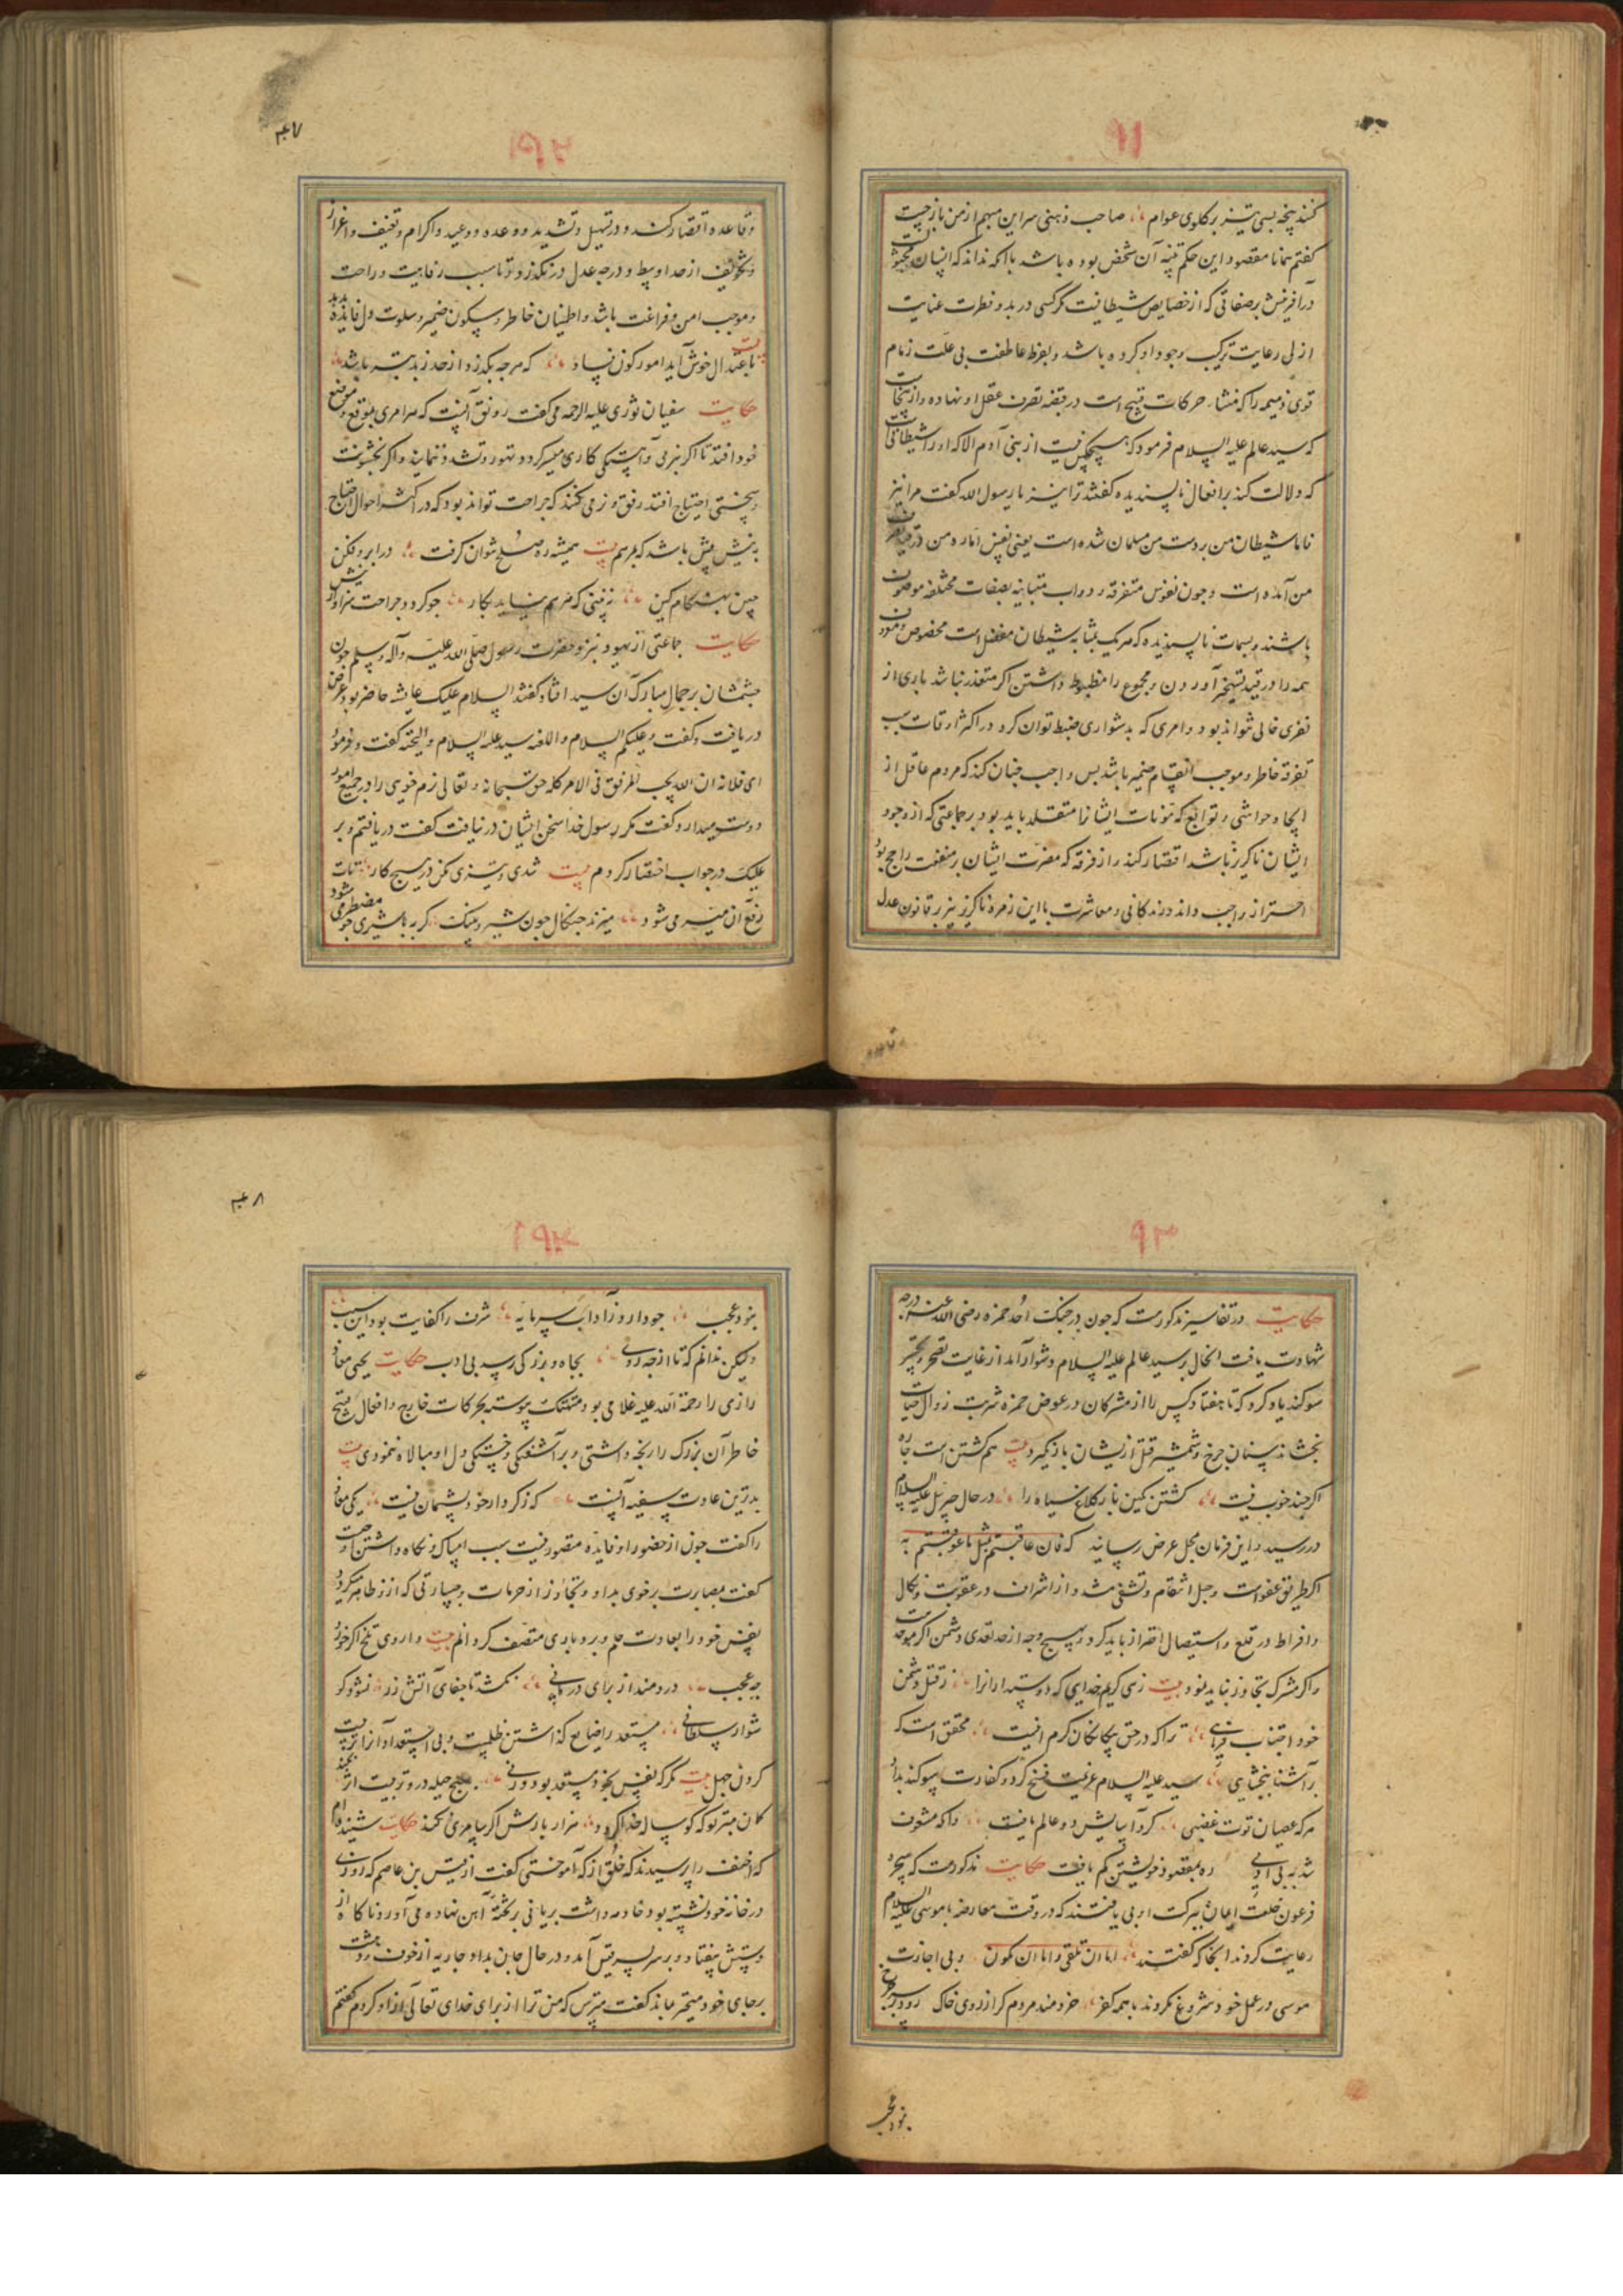 کنند پنجه بسی تیز بر کلوی عوام صاحب ذهنی سر این مبهم از من باز جست
کفتم همانا مقصود این حکم تنبه آن شخص بوده باشد با آنکه نداند که انسان
در آفرینش بر صفاتی که از خصایص شیطانیت کرکسی در بدو فطرت عنایت
ازلی رعایت ترکیب وجود او کرده باشد و بفرط عاطفت بی علت زمام
قوی ذمیمه را که منشاء حرکات قبیح است در قبضه تصرف عقل او نهاده و از
که سید عالم علیه السلام فرمود که هیچکس نیست از بنی آدم الا که او را شیطانی
که دلالت کند بر افعال ناپسندیده کفتند ترا نیز یا رسول الله کفت مرا نیز
تا با شیطان من بر دست من مسلمان شده است یعنی نفس اماره من در
من آمده است و چون نفوس متفرقه و دواب متباینه بصفات مختلفه موصوف
باشند و بسمات ناپسندیده که هر یک بمثابه شیطان مفضل است مخصوص
همه را در قید تسخیر آوردن و مجموع را مضبوط داشتن اکر متعذر نباشد باری از
نفری خالی نتواند بود و امری که بدشواری ضبط توان کرد در اکثر اوقات سبب
تفرقه خاطر و موجب انقسام ضمیر باشد پس واجب چنان کند که مردم عاقل از
و حواشی و توابع که مؤنات ایشانرا متقلد باید بود بر جماعتی که از وجود
ایشان ناکریز باشد اقتصار کند و از فرقه که مضرت ایشان بر منفعت راجح بود
احتراز واجب داند و زندکانی و معاشرت با این زمره ناکریز نیز بر قانون عدل
و قاعده اقتصار کند و در تسهیل و تشدید و وعده و وعید و اکرام و تعنیف و اعزاز
و تخویف از حد اوسط و درجه عدل در نکذرد تا سبب رفاهیت و راحت
و موجب امن و فراغت باشد و اطمینان خاطر و سکون ضمیر و سلوت دل فایده دهد
باعتدال خوش آید امور کون و فساد که هرچه بکذرد از حد زبد بتر باشد
حکایت سفیان ثوری علیه الرحمه می کفت رونق آنست که هر امری بموقع و موضع
خود افتد تا اکر بنرمی و آهستکی کاری میسر کردد تهور و تشدد ننمایند و اکر بخشونت
و سختی احتیاج افتد رفق و نرمی نکنند که جراحت تواند بود که در اکثر احوال احتیاج
به نیش بیش باشد که مرهم بیت همیشه ره صلح نتوان کرفت در ابرو فکن
چین بهنکام کین که مرهم نیاید بکار چو کردد جراحت سزاوار نیش
حکایت جماعتی از یهود بنزد حضرت رسول صلی الله علیه و آله و سلم چون
چشمشان بر جمال مبارک آن سید افتاد کفتند السلام علیک عایشه حاضر بود غرض
دریافت و کفت و علیکم السلام و اللعنه سید علیه السلام و التحیه کفت و فرمود
ای فلانه ان الله یحب الرفق فی الامر کله حق سبحانه و تعالی نرم خویی را در جمیع امور
دوست میدارد کفت مکر رسول خدا سخن ایشان در نیافت کفت دریافتم و بر
علیک در جواب اختصار کردم بیت تندی و تیزی مکن در هیچ کار
رفق آن میسر می شود میزند چنکال چون شیر و پلنک کربه با شیری چو مضطر می شود
حکایت در تفاسیر مذکورست که چون در جنک احد حمزه رضی الله عنه درجه
شهادت یافت انحال بر سید عالم علیه السلام دشوار آمد از غایت
سوکند یاد کرد که تا هفتاد کس را از مشرکان در عوض حمزه شربت زوال حیات
نچشاند سنان چرخ و شمشیر قتل از یشان باز نکیرد بیت هم کشتن است چاره
اکر چند خوب نیست کشتن بکین باز کلاغ سیاه را در حال جبریل علیه السلام
در رسید و این فرمان بمحل عرض رسانید که فان عاقبتم بمثل ما عوقبتم به
اکر طریق عفو است و جبل انتقام و تشفی شد و از اشراف در عقوبت و نکال
و افراط در قلع و استیصال احتراز باید کرد و بهیچ وجه از حد تعدی دشمن اکر موحد
و اکر مشرک تجاوز نباید نمود بیت زهی کریم خدایی که دوستدارانرا ز قتل دشمن
خود اجتناب فرمایی ترا که در حق بیکانکان کرم اینست محقق است که
بر آشنا ببخشایی سید علیه السلام عزیمت فسخ کرد و کفارت سوکند بداد
هر که عصیان قوت غضبی کرد آسایش دو عالم یافت وانکه مشعوف
شد به بی ادبی ره بمقصود خویشتن کم یافت حکایت مذکورست که سحره
فرعون خلعت ایمان ببرکت ادبی یافتند که در وقت معارضه با موسی علیه السلام
رعایت کردند انجا که کفتند اما ان تلقی و اما ان نکون و بی اجازت
موسی در عمل خود شروع نکردند با همه کفر خردمند مردم کر از روی خاک رود بر سر چرخ
نبود عجب
نبود عجب چو دارد ز آداب سرمایه شرف را کفایت بود این سبب
ولیکن ندانم که تا از چه روی بجاه و بزرکی رسد بی ادب حکایت یحیی معاذ
رازی را رحمة الله علیه غلامی بود متهتک پیوسته بحرکات خارج و افعال قبیح
خاطر آن بزرک را رنجه داشتی و بر آشفتکی و خستکی دل او مبالاه ننمودی بیت
بدترین عادت سفیه آنست که ز کردار خود پشیمان نیست یکی معاذ
را کفت چون از حضور او فایده مقصور نیست سبب امساک و نکاه داشتن او چیست
کفت بمصابرت بر خوی بد او و تجاوز از حرمات و جسارتی که ازو ظاهر میکردد
نفس خود را بعادت حلم و بردباری متصف کردانم بیت داروی تلخ اکر خورد
چه عجب دردمند از برای درمانی نکشد تا جفای آتش زر نشود کو
شوار سلطانی مستعد را ضایع کذاشتن ظلمست و بی استعداد آنرا تربیت
کردن جهل بیت مکر که نفس بخود مستعد بود ورنی بهیچ حیله درو تربیت اثر نکند
کمان مبر تو که کوساله خدا کردد هزار بارش اکر سامری کند حکایت شنیده ام
که احنف را پرسیدند که خلق از که آموختی کفت از قیس بن عاصم که روزی
در خانه خود نشسته بود خادمه داشت بریانی بر تخته آهن نهاده می آورد ناکاه از
دستش بیفتاد و بر سر پسر قیس آمد و در حال جان بداد جاریه از خوف و دهشت
بر جای خود متحیر بماند کفت مترس که من ترا از برای خدای تعالی آزاد کردم کفتم